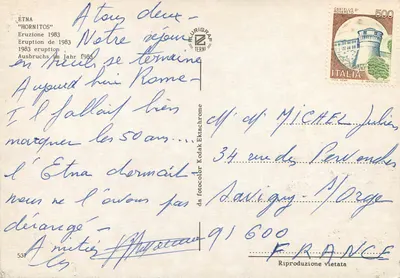 ETNA
"HORNITOS"
Eruzione 1983
Eruption de 1983
1983 eruption
Ausbruchs im Jahr 1983
A tous deux -
Notre séjour
en Sicile se termine
Aujourd'hui Rome -
Il fallait bien
marquer les 50 ans....
l'Etna dormait -
nous ne l'avons pas
dérangé -
A
537
da fotocolor Kodak Ektachrome
500
ITALIA
M. M. MICHEL Julien
34 rue des
Savigny s/Orge
91600
FRANCE
Riproduzione vietata